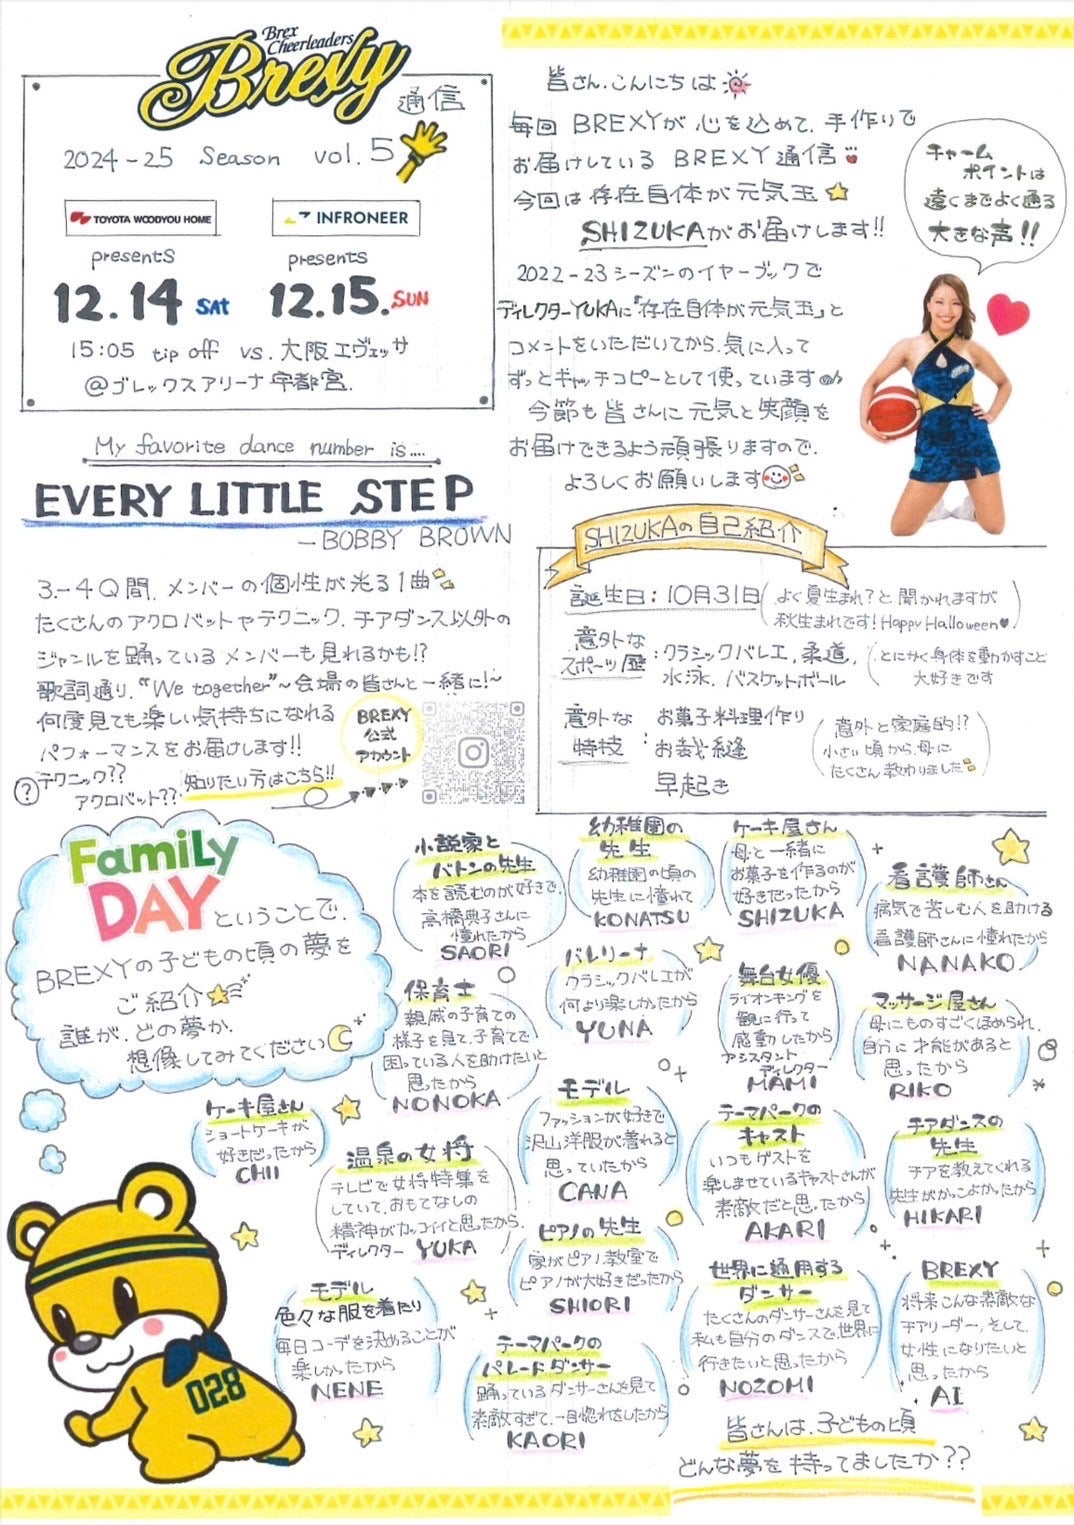 Brex
Cheerleaders
Brexy
通信
2024-25 Season vol.5
TOYOTA WOODYOU HOME
presents
12.14 SAT
INFRONEER
presents
12.15.SUN
15:05 tip off vs.大阪エヴェッサ
@ブレックスアリーナ宇都宮.
皆さん.こんにちは
毎回 BREXYが 心を込めて.手作りで
お届けしている BREXY通信
今回は存在自体が元気玉
SHIZUKAがお届けします!!
2022-23シーズンのイヤーブックで
ディレクターYUKAに「存在自体が元気玉」と
コメントをいただいてから.気に入って
ずっとキャッチコピーとして使っています
今節も皆さんに元気と笑顔を
お届けできるよう頑張りますので.
よろしくお願いします
チャーム
ポイントは
遠くまでよく通る
大きな声!!
My favorite dance number is....
EVERY LITTLE STEP
-BOBBY BROWN
3-4Q間.メンバーの個性が光る1曲
たくさんのアクロバットやテクニック.チアダンス以外の
ジャンルを踊っているメンバーも見れるかも!?
歌詞通り."We together"~会場の皆さんと一緒に!~
何度見ても楽しい気持ちになれる
パフォーマンスをお届けします!!
? テクニック??
アクロバット??
知りたい方はこちら!!
BREXY
公式
アカウント
SHIZUKAの自己紹介
誕生日:10月31日(よく夏生まれ?と聞かれますが
秋生まれです!Happy Halloween♥)
意外な
スポーツ歴:クラシックバレエ,柔道,
水泳.バスケットボール
(とにかく身体を動かすこと
大好きです
意外な
特技:お菓子料理作り
お裁縫
早起き
(意外と家庭的!?
小さい頃から.母に
たくさん教わりました)
FamiLy
DAYということで.
BREXYの子どもの頃の夢を
ご紹介
誰が.どの夢か.
想像してみてください
小説家と
バトンの先生
本を読むのが好きで.
高橋典子さんに
憧れたから
SAORI
幼稚園の
先生
幼稚園の頃の
先生に憧れて
KONATSU
ケーキ屋さん
母と一緒に
お菓子を作るのが
好きだったから
SHIZUKA
看護師さん
病気で苦しむ人を助ける
看護師さんに憧れたから
NANAKO
保育士
親戚の子育ての
様子を見て.子育てで
困っている人を助けたいと
思ったから
NONOKA
バレリーナ
クラシックバレエが
何より楽しかったから
YUNA
舞台女優
ライオンキングを
観に行って
感動したから
アシスタント
ディレクター
MAMI
マッサージ屋さん
母にものすごくほめられ.
自分に才能があると
思ったから
RIKO
ケーキ屋さん
ショートケーキが
好きだったから
CHII
温泉の女将
テレビで女将特集を
していて.おもてなしの
精神がカッコイイと思ったから.
ディレクター YUKA
モデル
ファッションが好きで
沢山洋服が着れると
思っていたから
CANA
テーマパークの
キャスト
いつもゲストを
楽しませているキャストさんが
素敵だと思ったから
AKARI
チアダンスの
先生
チアを教えてくれる
先生がかっこよかったから
HIKARI
ピアノの先生
家がピアノ教室で
ピアノが大好きだったから
SHIORI
モデル
色々な服を着たり
毎日コーデを決めることが
楽しかったから
NENE
テーマパークの
パレードダンサー
踊っているダンサーさんを見て
素敵すぎて.一目惚れをしたから
KAORI
世界に通用する
ダンサー
たくさんのダンサーさんを見て
私も自分のダンスで.世界に
行きたいと思ったから
NOZOMI
BREXY
将来こんな素敵な
チアリーダー,そして.
女性になりたいと
思ったから
AI
028
皆さんは.子どもの頃
どんな夢を持ってましたか??